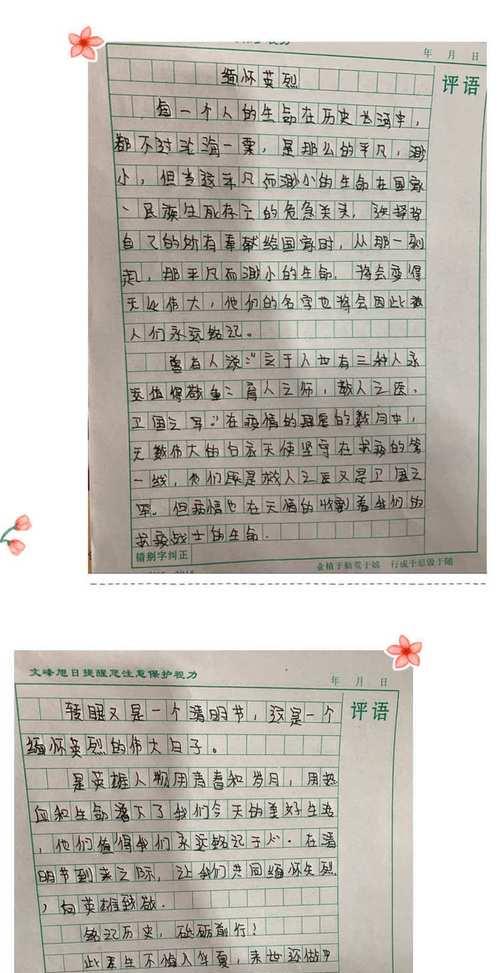 年 月 日
评语
缅怀英烈
每一个人的生命在历史长河中,
都不过沧海一粟,是那么的平凡,渺
小,但当这平凡而渺小的生命在国家
、民族生死存亡的危急关头,选择将
自己的所有奉献给国家时,从那一刻
起,那平凡而渺小的生命,将会变得
无比伟大,他们的名字也将会因此被
人们永远铭记。
曾有人说:“立于人世有三种人永
远值得敬重:育人之师,救人之医,
卫国之军。”在疫情的肆虐的数月中,
无数伟大的白衣天使坚守在抗疫的第
一线,他们既是救人之医又是卫国之
军。但疫情也在无情的收割着我们的
抗疫战士的生命.
错别字纠正
业精于勤荒于嬉 行成于思毁于随
文峰旭日提醒您注意保护视力
年 月 日
评语
转眼又是一个清明节,这是一个
缅怀英烈的伟大日子。
是英雄人物用青春和岁月,用热
血和生命 下了我们今天的美好生活
,他们值得我们永远铭记于心.在清
明节到来之际,让我们共同缅怀先烈
,向英雄致敬.
铭记历史,砥砺前行!
此生不悔入华夏,来世还做中